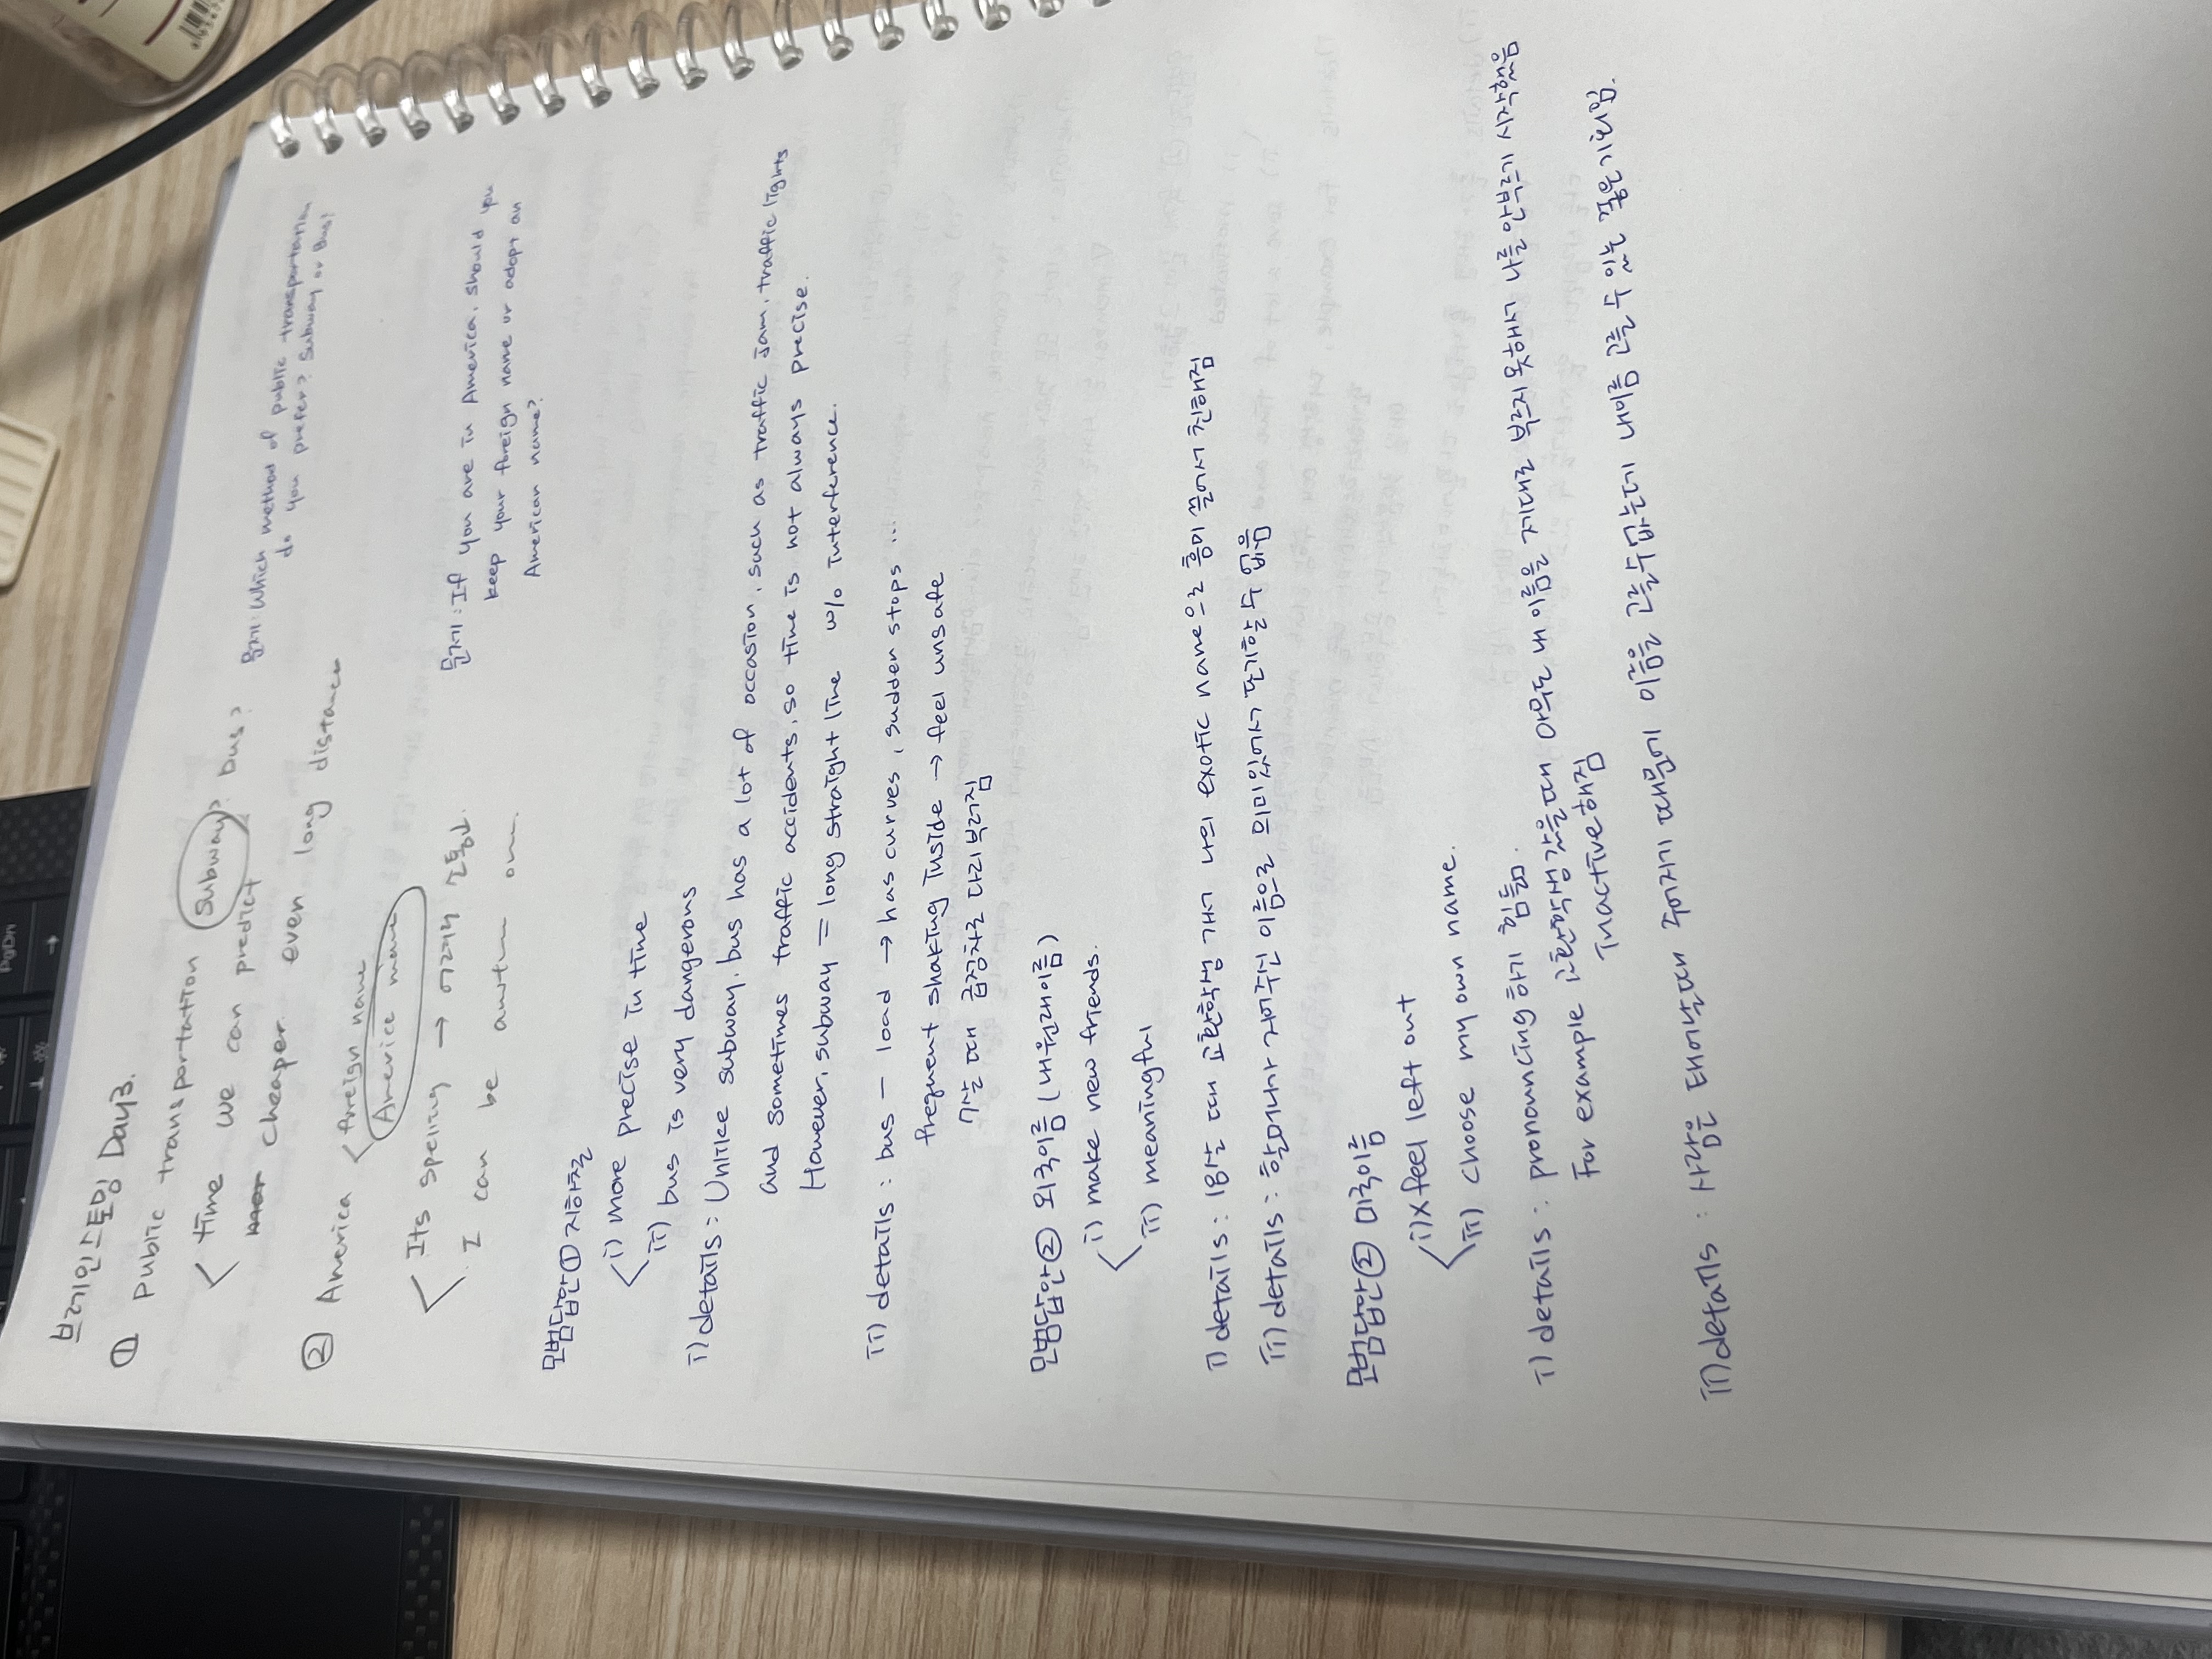 브레인스토밍 Day3.
① Public transportation subway? bus?
time we can predict
cheaper even long distance
문제 : Which method of public transportation
do you prefer? Subway or Bus?
② America foreign name
Americe name
Its spelling → 어려워 혼동.
I can be own.
문제 : If you are in America, should you
keep your foreign name or adopt an
American name?
모범답안① 지하철
i) more precise in time
ii) bus is very dangerous
i) details : Unlike subway, bus has a lot of occasion, such as traffic jam, traffic lights
and sometimes traffic accidents, so time is not always precise.
However, subway = long straight line w/o interference.
ii) details : bus - load → has curves, sudden stops ...
frequent shaking inside → feel unsafe
7살 때 급정차로 다리 부러짐
모범답안② 외국이름 (내 원래이름)
i) make new friends.
ii) meaningful
i) details : 18살 때 교환학생 가서 나의 exotic name으로 흥미 끌어서 친해짐
ii) details : 할머니가 지어주신 이름으로 의미있어서 포기할 수 없음
모범답안② 미국이름
i) x feel left out
ii) choose my own name.
i) details : pronouncing 하기 힘듦.
For example 교환학생 갔을때 아무도 내 이름을 제대로 부르지 못해서 나를 안부르기 시작했음
Inactive해짐
ii) details : 사람은 태어날때 주어지기 때문에 이름을 고를 수 없는데 내이름 고를 수 있는 좋은 기회임.